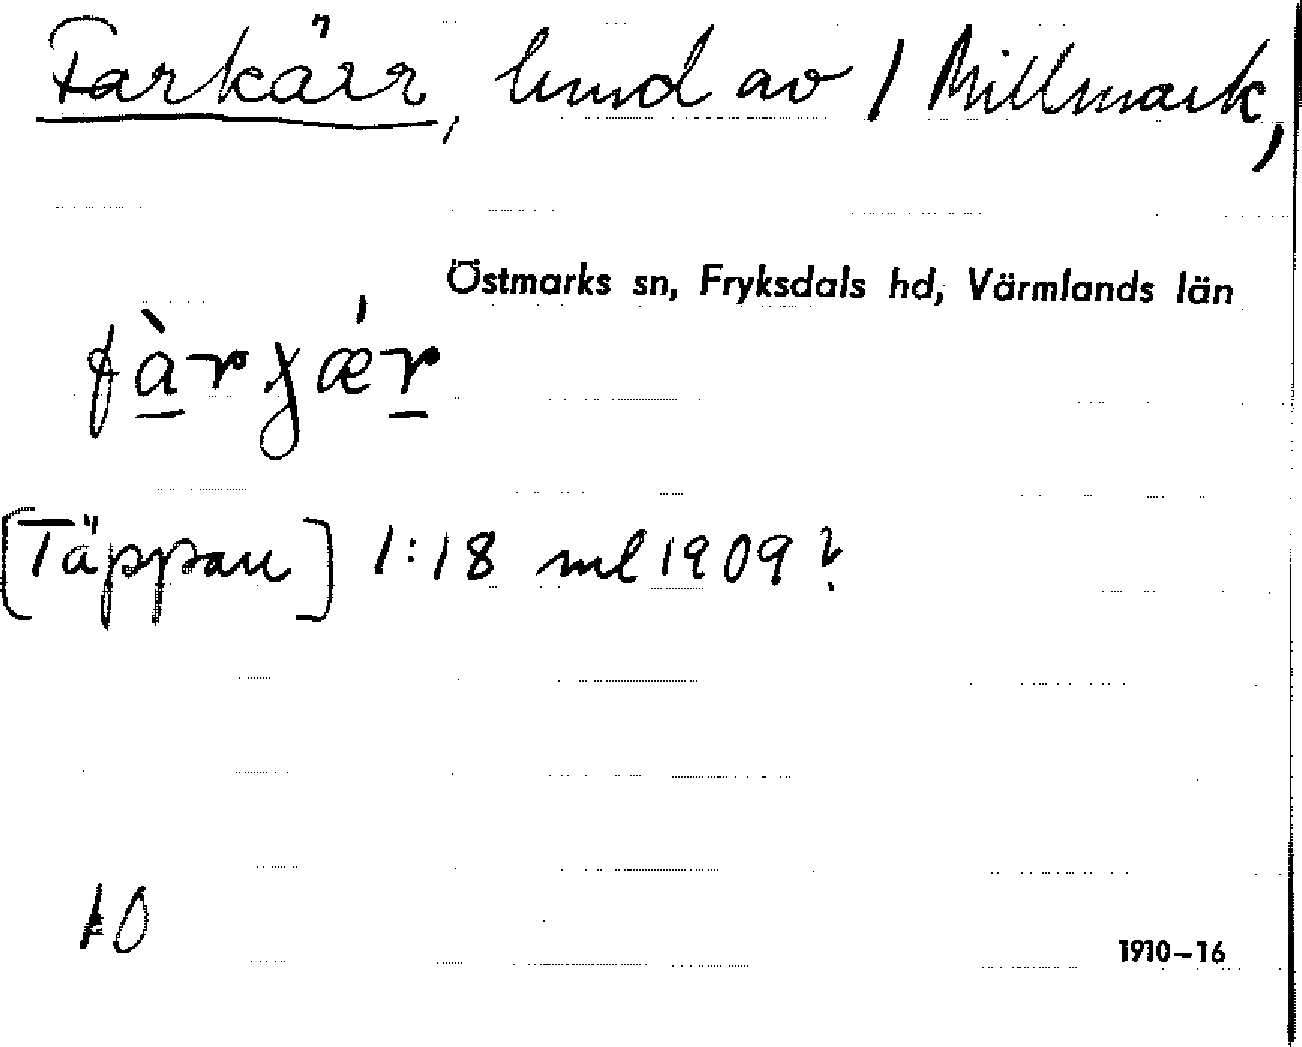 Farkärr, lund av 1 Millmark,
Östmarks sn, Fryksdals hd, Värmlands län
[Täppan] 1:18 ml 1909?
1910–16